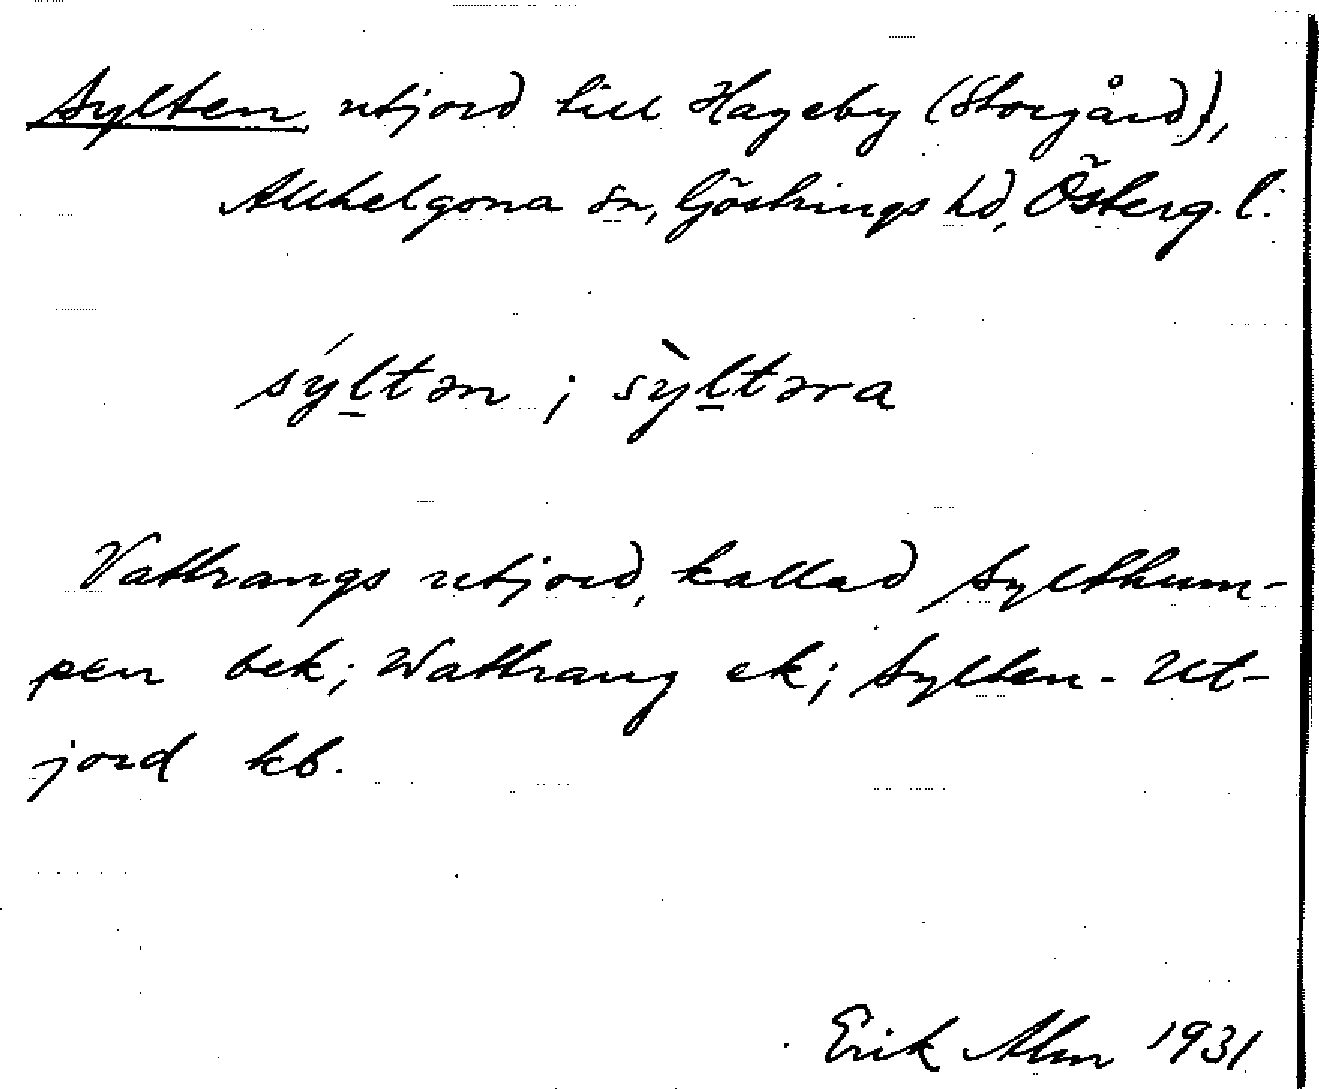 Sylten utjord till Hageby (Storgård),
Allhelgona sn, Göstrings hd, Österg. l.
sýltən ; sỳltəra
Vattrangs utjord, kallad Sylthum-
pen bek; Wattrang ek; Sylten - Ut-
jord kb.
Erik Alm 1931